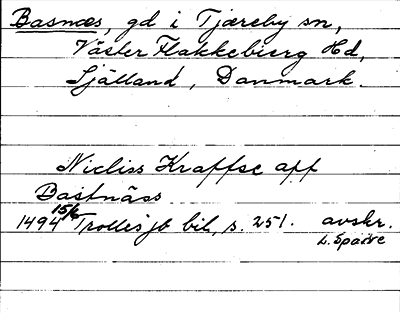 Basnæs, gd i Tjæreby sn,
Väster Flakkebierg Hd,
Själland, Danmark.
Nicliss Kraffse aff
Bastnäss
1494 15/6 Trolles jb bil, s. 251. avskr.
L. Sparre